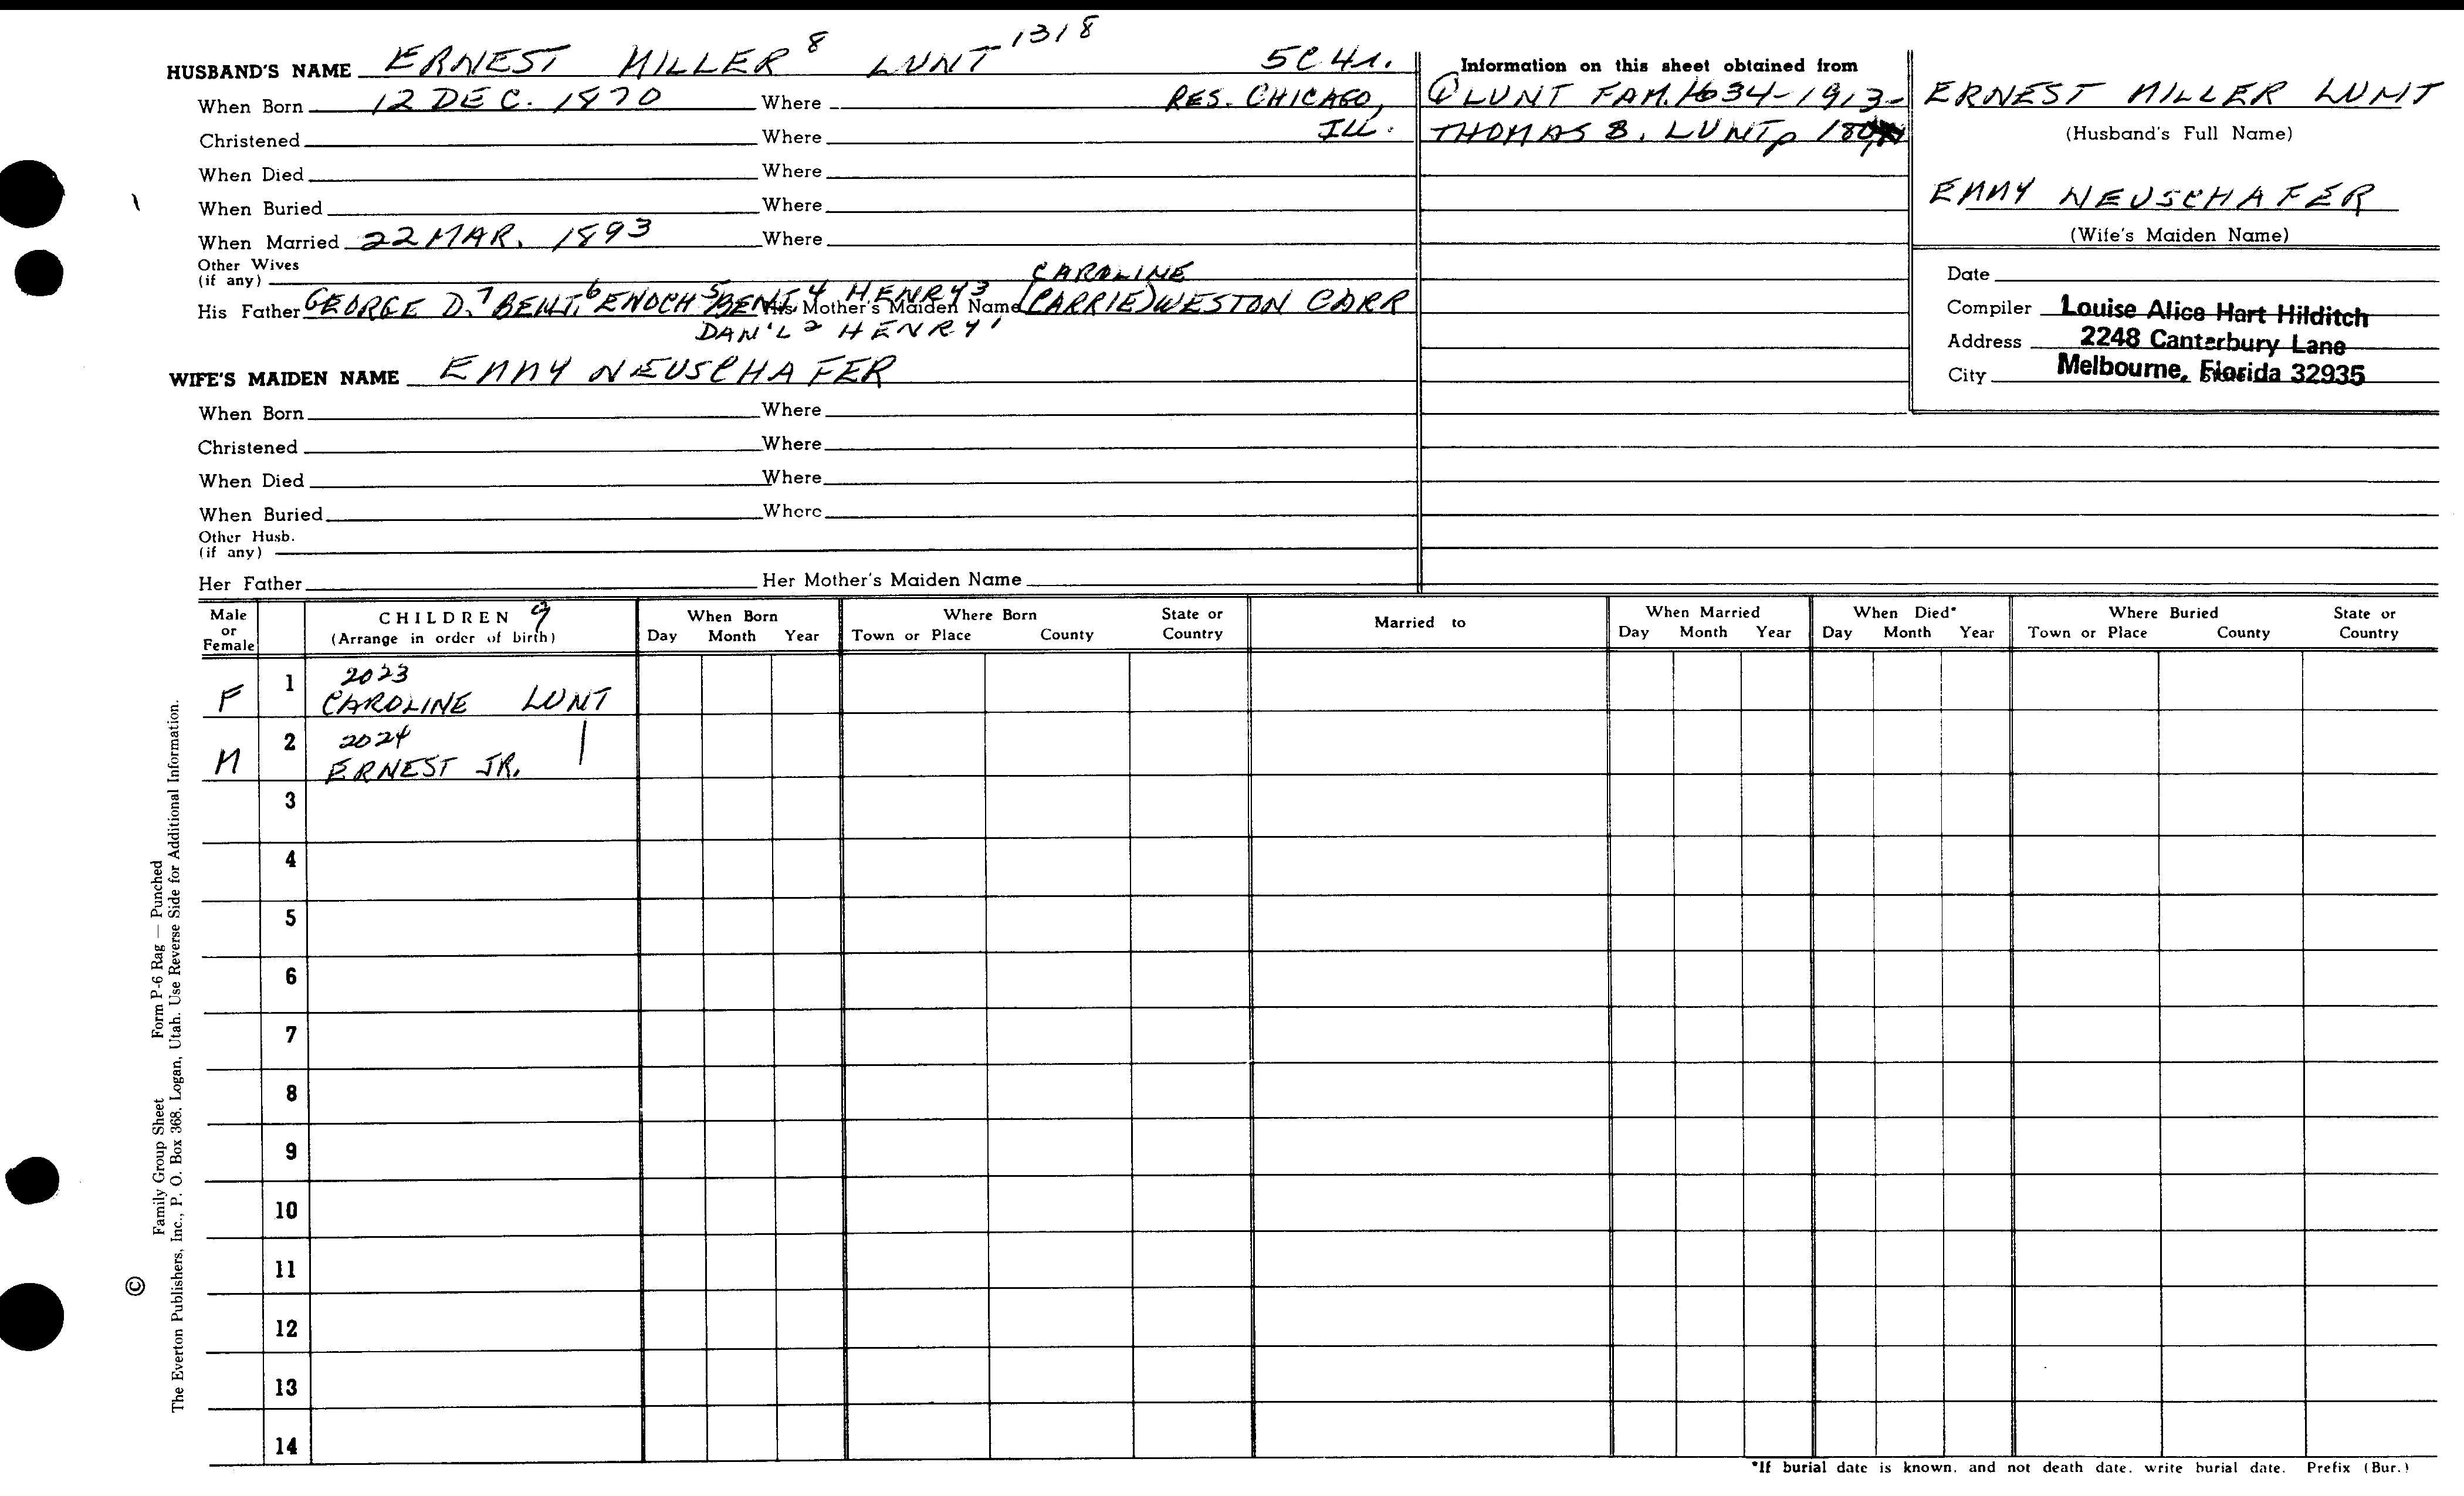 HUSBAND'S NAME ERNEST MILLER 8 LUNT 1318 5C4r.
When Born 12 DEC. 1870 Where RES. CHICAGO,
Christened Where ILL.
When Died Where
When Buried Where
When Married 22 MAR. 1893 Where
Other Wives
(if any)
His Father GEORGE D.7 BENJ.6 ENOCH 5 BENJ.4 HENRY 3 His Mother's Maiden Name CAROLINE (CARRIE) WESTON CARR
DAN'L 2 HENRY 1
WIFE'S MAIDEN NAME EMMY NEUSCHAFER
When Born Where
Christened Where
When Died Where
When Buried Where
Other Husb.
(if any)
Her Father Her Mother's Maiden Name
Information on this sheet obtained from
① LUNT FAM. 1634-1913-
THOMAS S. LUNT, p
ERNEST MILLER LUNT
(Husband's Full Name)
EMMY NEUSCHAFER
(Wife's Maiden Name)
Date
Compiler Louise Alice Hart Hilditch
Address 2248 Canterbury Lane
City Melbourne, Florida 32935
Male or Female CHILDREN 9 (Arrange in order of birth) When Born Day Month Year Where Born Town or Place County State or Country Married to When Married Day Month Year When Died* Day Month Year Where Buried Town or Place County State or Country
F 1 2023 CAROLINE LUNT
M 2 2024 ERNEST JR. |
3
4
5
6
7
8
9
10
11
12
13
14
*If burial date is known, and not death date, write burial date. Prefix (Bur.)
Family Group Sheet Form P-6 Rag — Punched
© The Everton Publishers, Inc., P. O. Box 368, Logan, Utah. Use Reverse Side for Additional Information.